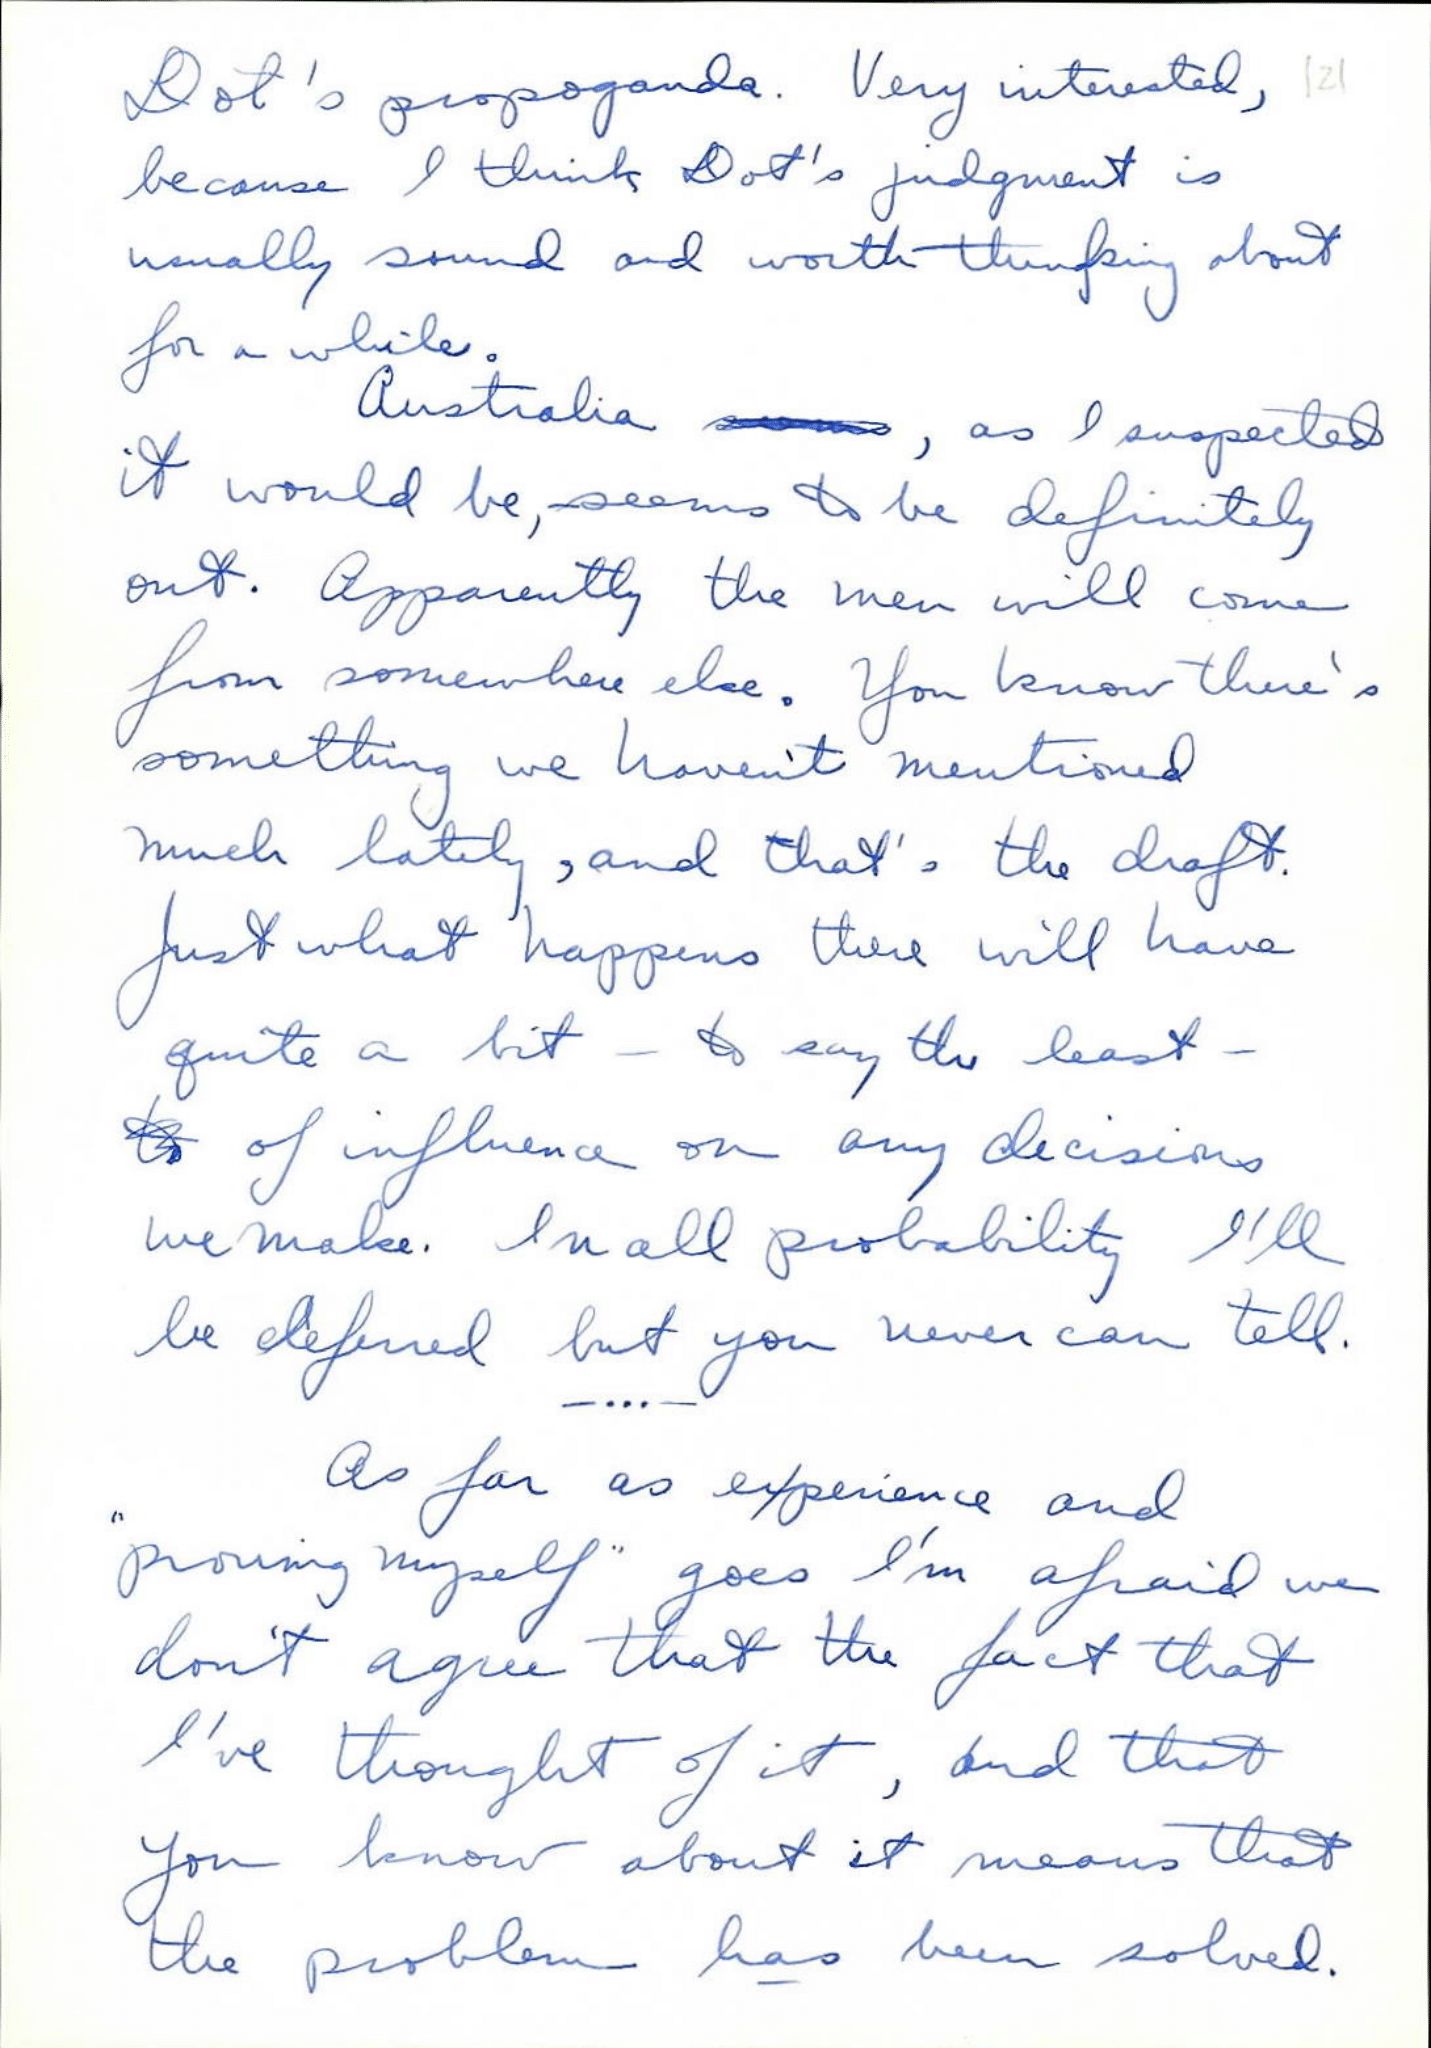 Dot's propoganda. Very interested, |2|
because I think Dot's judgment is
usually sound and worth thinking about
for a while.
Australia seems, as I suspected
it would be, seems to be definitely
out. Apparently the men will come
from somewhere else. You know there's
something we haven't mentioned
much lately, and that's the draft.
Just what happens there will have
quite a bit - to say the least -
to of influence on any decisions
we make. In all probability I'll
be deferred but you never can tell.
-...-
As far as experience and
"proving myself" goes I'm afraid we
don't agree that the fact that
I've thought of it, and that
you know about it means that
the problem has been solved.